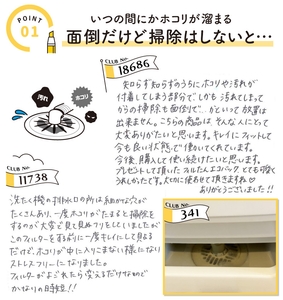 POINT
01
いつの間にかホコリが溜まる
面倒だけど掃除はしないと…
CLUB No.
18686
汚れ
ホコリ
知らず知らずのうちにホコリや汚れが
付着してしまう部分で しかも 汚れてしまって
からの掃除も面倒で… かといって放置は
出来ません。こちらの商品は、そんな人にとって
大変ありがたいと思います。キレイにフィットして
今も良い状態で使いています。
今後、購入して使い続けたいと思います。
プレゼントして頂いた エコバック とても嬉し
うれしかったです。大切に使わせて頂きますね
ありがとうございました!!
CLUB No.
11738
洗たく機の排水口の所は細かな穴が
たくさんあり、一度ホコリがたまると掃除を
するのが大変で見て見ぬフリをしていましたが
このフィルターをするだけで一度キレイにして貼る
だけで、ホコリが中に入りこまない様になり
ストレスフリーになりました。
フィルターがよごれたら変えるだけなので
かなりの時短!!
CLUB No.
341